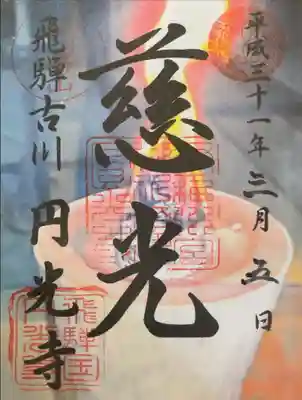 平成三十一年三月五日
慈光
飛騨古川 円光寺